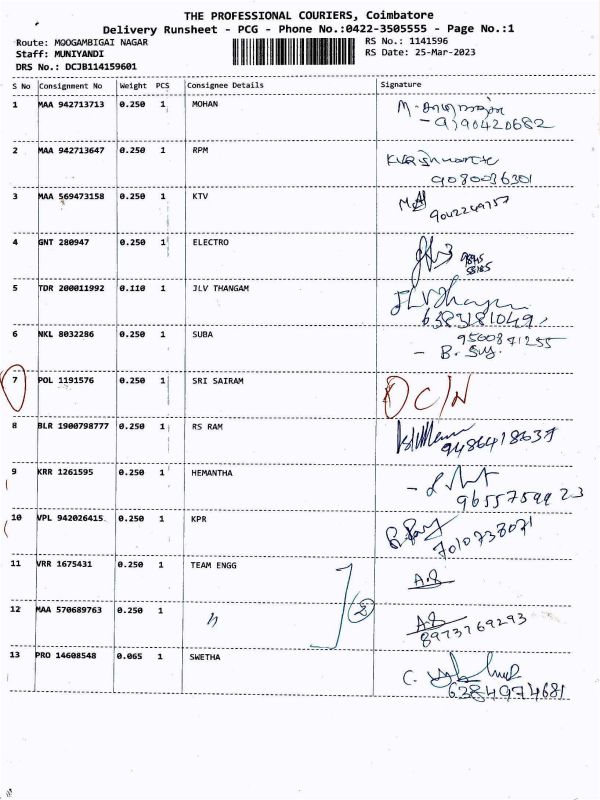 THE PROFESSIONAL COURIERS, Coimbatore
Delivery Runsheet - PCG - Phone No.:0422-3505555 - Page No.:1
Route: MOOGAMBIGAI NAGAR
RS No.: 1141596
Staff: MUNIYANDI
RS Date: 25-Mar-2023
DRS No.: DCJB114159601
S No Consignment No Weight PCS Consignee Details Signature
1 MAA 942713713 0.250 1 MOHAN
9190420682
2 MAA 942713647 0.250 1 RPM
9080036301
3 MAA 569473158 0.250 1 KTV
4 GNT 280947 0.250 1 ELECTRO
5 TDR 200011992 0.110 1 JLV THANGAM JLV Thangam
6383181049
6 NKL 8032286 0.250 1 SUBA
9500871255
7 POL 1191576 0.250 1 SRI SAIRAM DC/N
8 BLR 1900798777 0.250 1 RS RAM
9486418637
9 KRR 1261595 0.250 1 HEMANTHA
9655759923
10 VPL 942026415 0.250 1 KPR
7010738071
11 VRR 1675431 0.250 1 TEAM ENGG A.S
12 MAA 570689763 0.250 1 〃 2 A.S
8973769293
13 PRO 14608548 0.065 1 SWETHA C.
6284974681